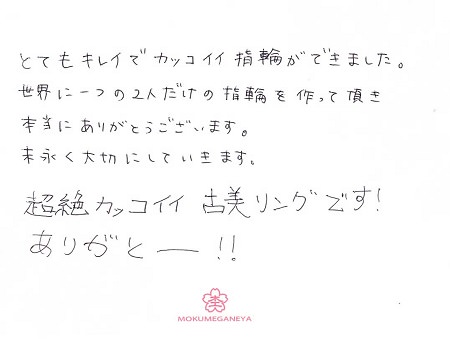 とてもキレイでカッコイイ指輪ができました。
世界に一つの2人だけの指輪を作って頂き
本当にありがとうございます。
末永く大切にしていきます。
超絶カッコイイ 古美リングです!
ありがとー!!
MOKUMEGANEYA